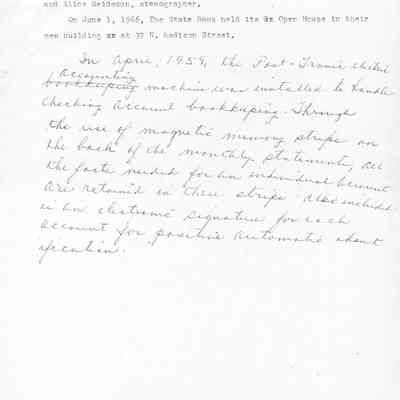 and Alice Seideman, stenographer.
On June 1, 1966, The State Bank held its 6x Open House in their
new building xx at 37 N. Madison Street.
In April, 1959, the Post-Tronic electric
Accounting
bookkeeping machine was installed to handle
checking account bookkeeping. Through
the use of magnetic memory strips on
the back of the monthly statement, all
the facts needed for an individual account
are retained in these strips. Also included
is an electronic signature for each
account for positive automatic ident
ification.